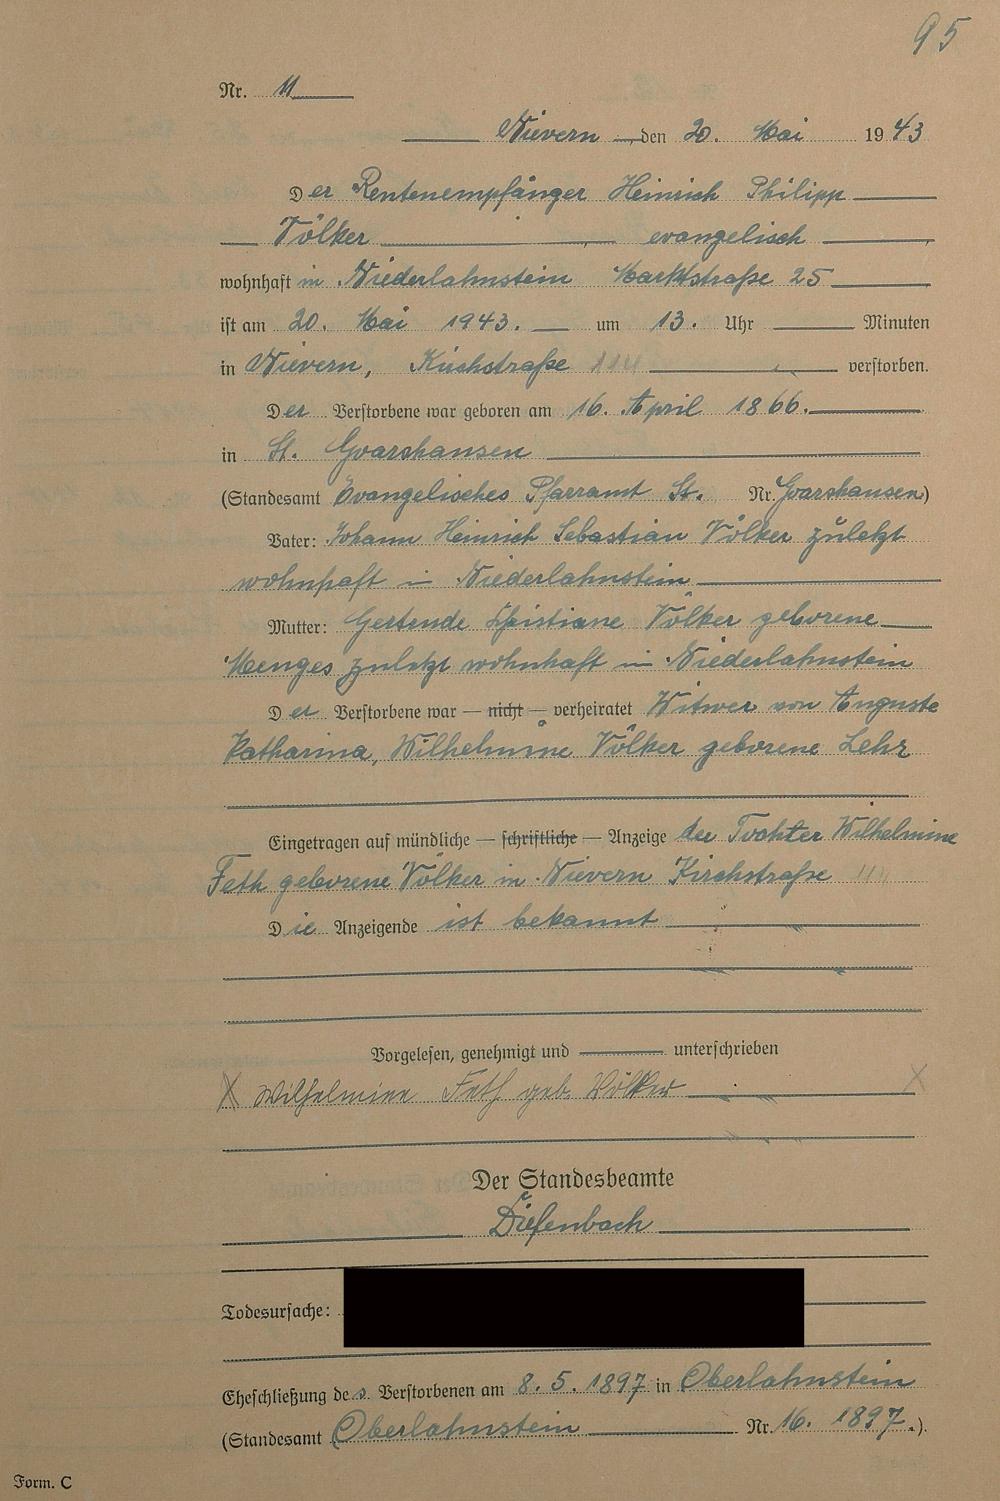 95
Nr. 11
Nievern, den 20. Mai 1943
Der Rentenempfänger Heinrich Philipp
Völker evangelisch
wohnhaft in Niederlahnstein Marktstraße 25
ist am 20. Mai 1943. um 13. Uhr Minuten
in Nievern, Kirchstraße 114 verstorben.
Der Verstorbene war geboren am 16. April 1866.
in St. Goarshausen
(Standesamt Evangelisches Pfarramt St. Nr. Goarshausen)
Vater: Johann Heinrich Sebastian Völker zuletzt
wohnhaft in Niederlahnstein
Mutter: Gertende Christiane Völker geborene
Menges zuletzt wohnhaft in Niederlahnstein
Der Verstorbene war — nicht — verheiratet Witwer von Auguste
Katharina, Wilhelmine Völker geborene Lehr
Eingetragen auf mündliche — schriftliche — Anzeige der Tochter Wilhelmine
Feth geborene Völker in Nievern Kirchstraße
Die Anzeigende ist bekannt
Vorgelesen, genehmigt und unterschrieben
X Wilhelmine Feth geb. Völker X
Der Standesbeamte
Diefenbach
Todesursache:
Eheschließung des Verstorbenen am 8. 5. 1897 in Oberlahnstein
(Standesamt Oberlahnstein Nr. 16. 1897.).
Form. C